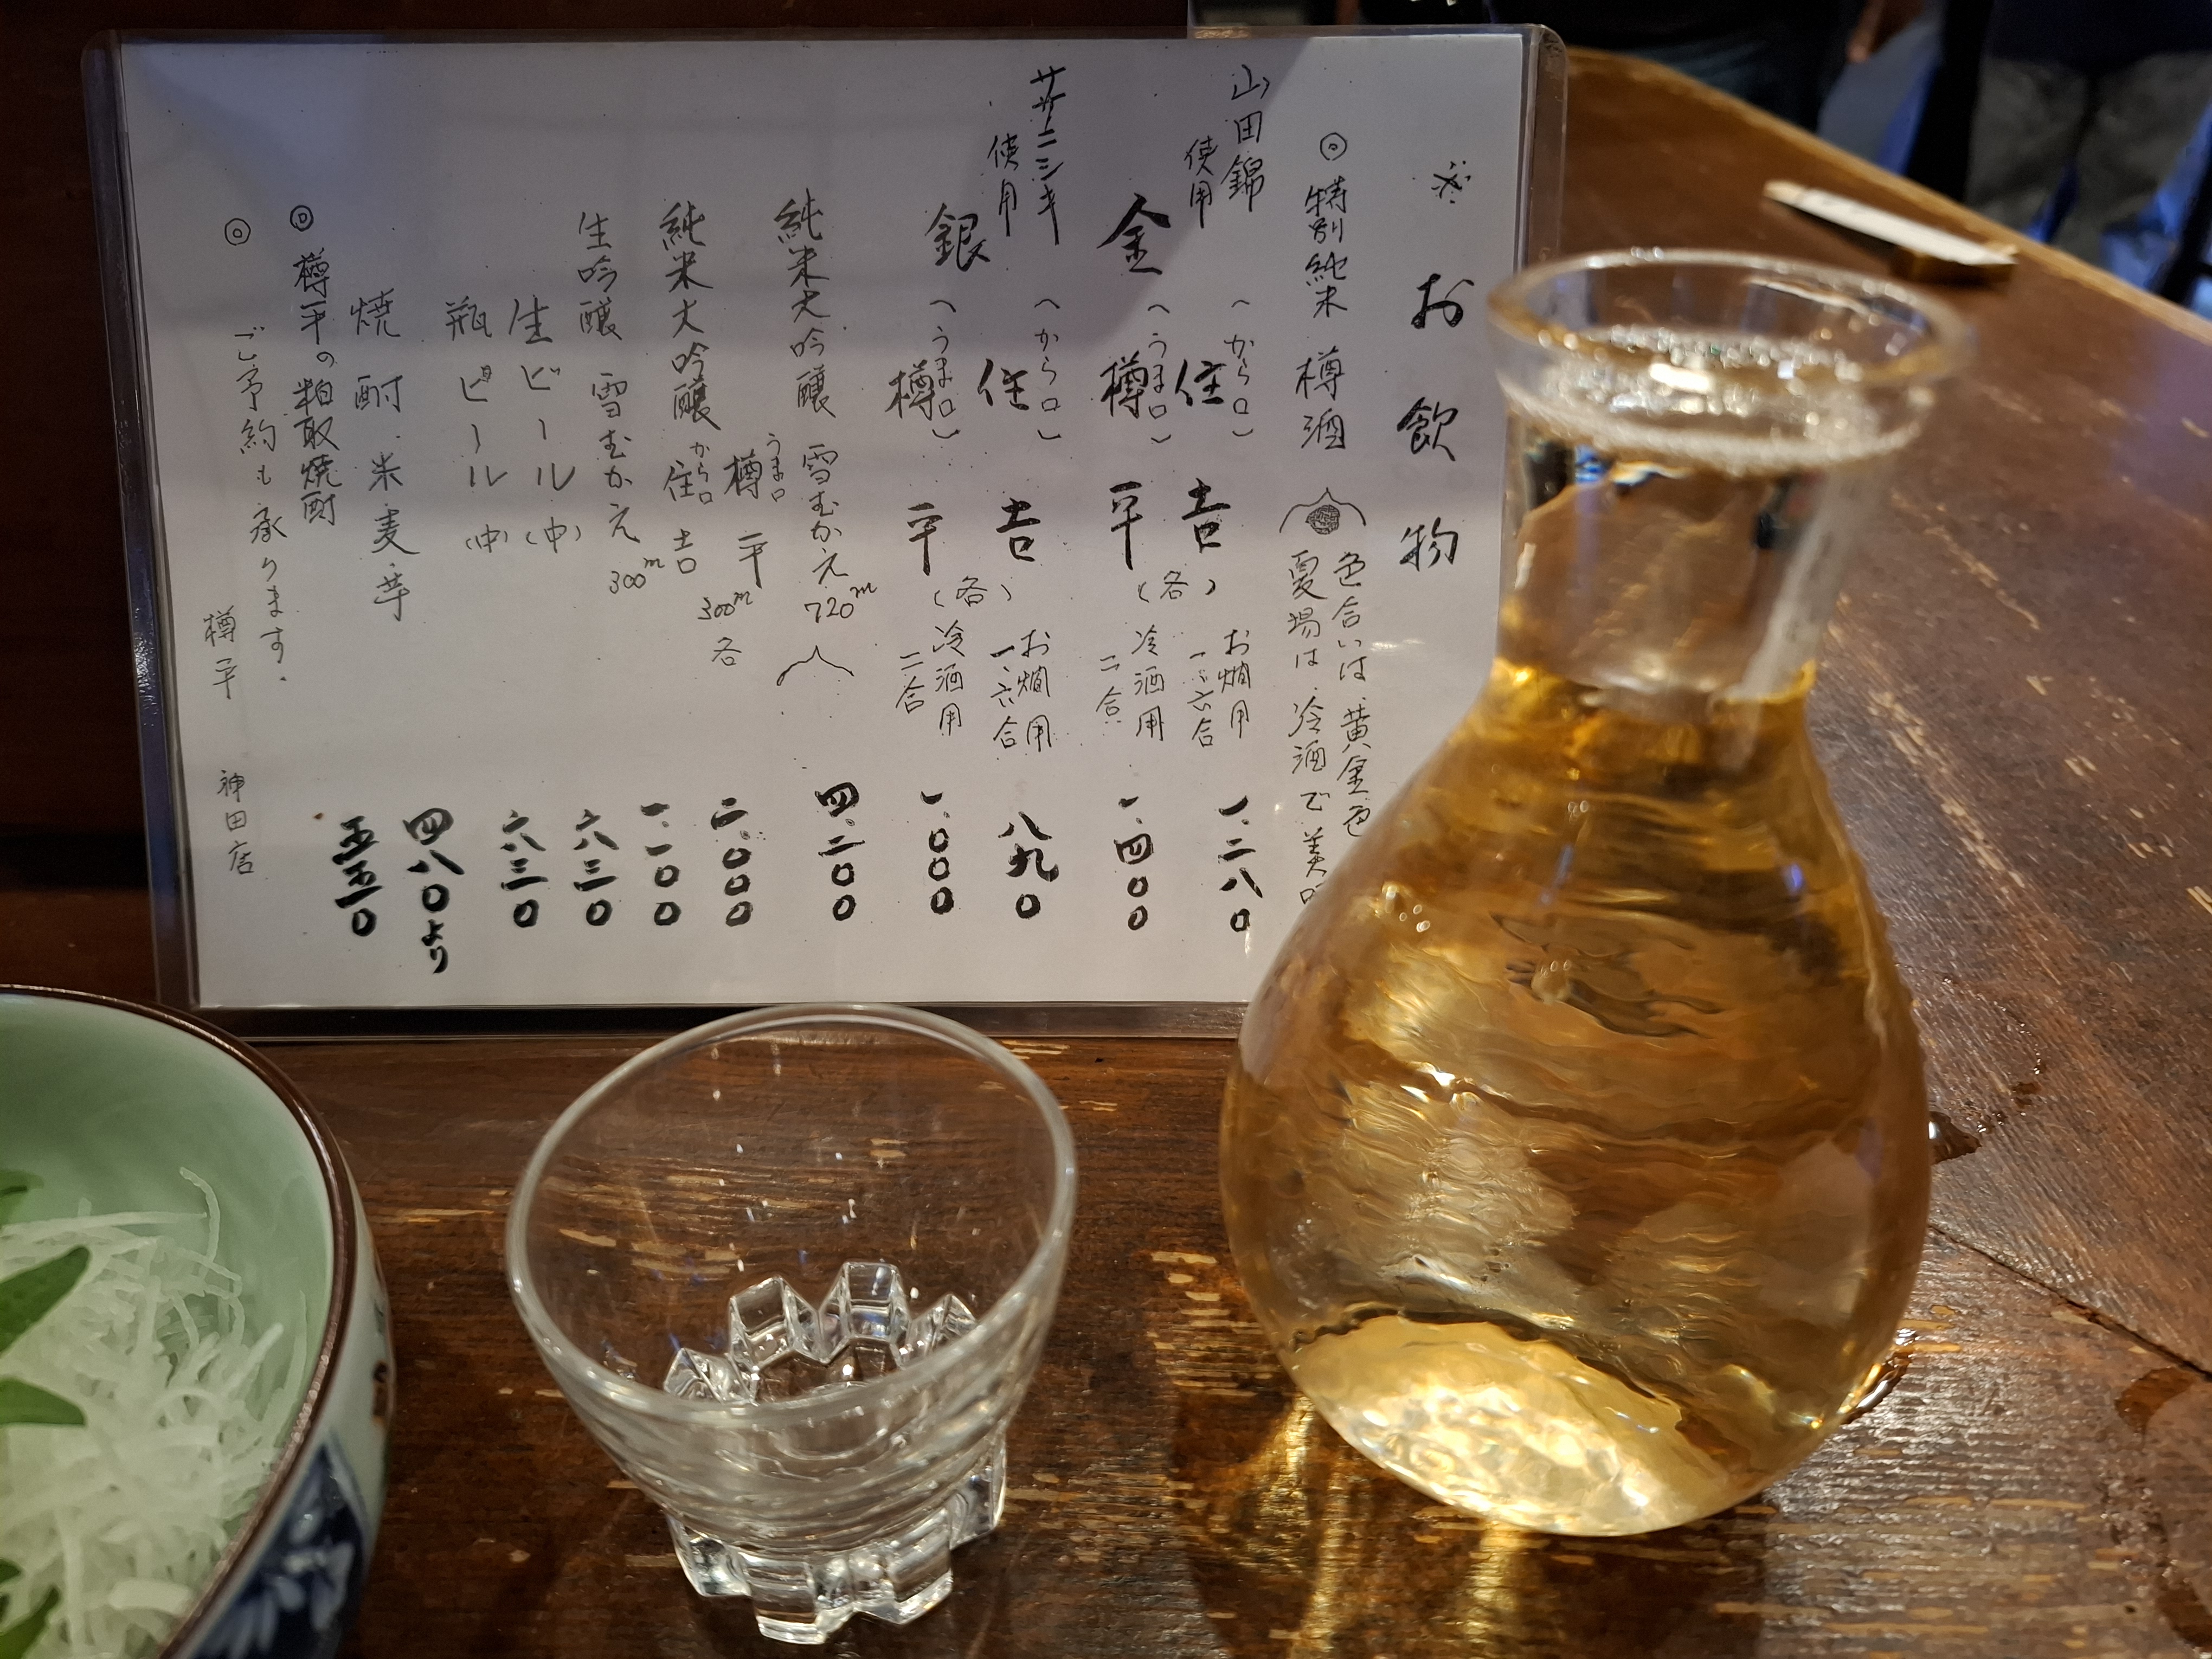 お飲物
◎特別純米 樽酒
色合いは、黄金色
夏場は、冷酒で美味
山田錦
使用
金
(から口)
住吉
(うま口)
樽平
(各)
お燗用
一、六合
一、二八〇
冷酒用
二合
一、四〇〇
ササニシキ
使用
銀
(から口)
住吉
(うま口)
樽平
(各)
お燗用
一、六合
八九〇
冷酒用
二合
一、〇〇〇
純米大吟醸 雪むかえ 720m 四、二〇〇
うま口
樽平
300m 各 二、〇〇〇
純米大吟醸
から口
住吉
生吟醸 雪むかえ 300m 一、一〇〇
生ビール(中) 六三〇
瓶ビール(中) 六三〇
焼酎 米 麦 芋 四八〇より
◎樽平の粕取焼酎 五五〇
◎ご予約も承ります。
樽平 神田店